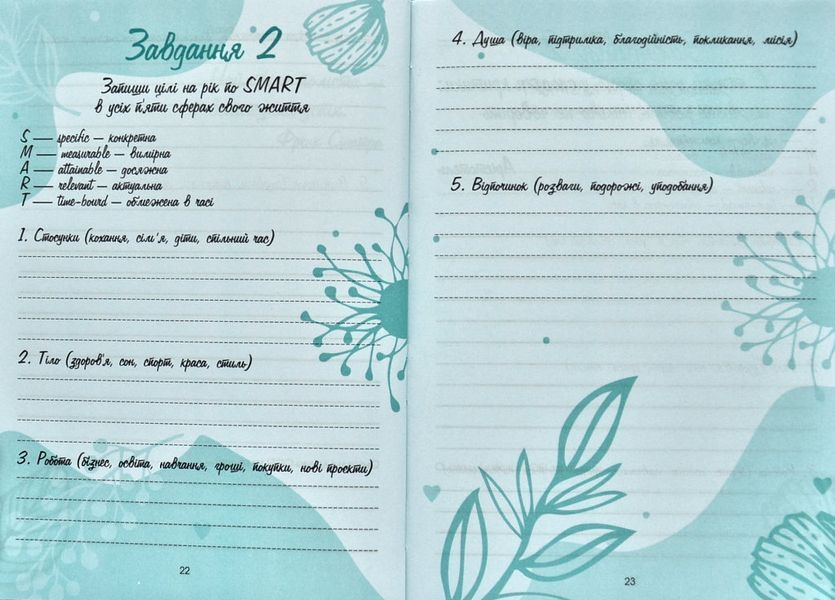 Завдання 2
Запиши цілі на рік по SMART
в усіх п'яти сферах свого життя
S — specific — конкретна
M — measurable — вимірна
A — attainable — досяжна
R — relevant — актуальна
T — time-bound — обмежена в часі
1. Стосунки (кохання, сім'я, діти, спільний час)
2. Тіло (здоров'я, сон, спорт, краса, стиль)
3. Робота (бізнес, освіта, навчання, гроші, покупки, нові проєкти)
22
4. Душа (віра, підтримка, благодійність, покликання, місія)
5. Відпочинок (розваги, подорожі, уподобання)
23